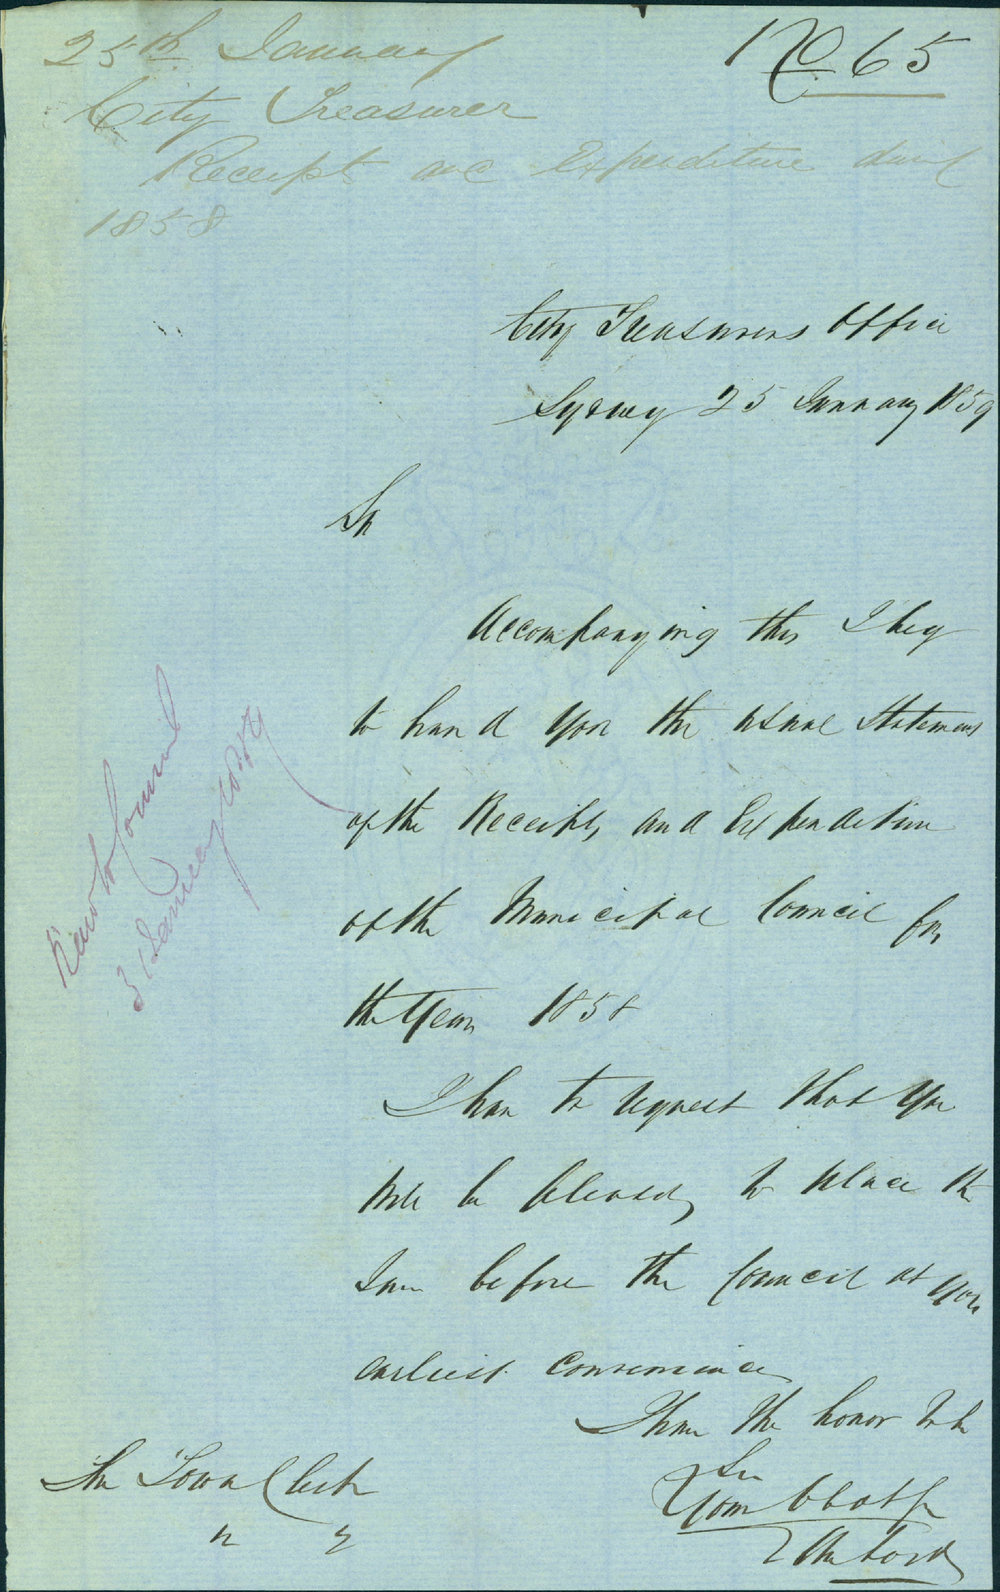 25th January
No 65
City Treasurer
Receipts and Expenditure during
1858
City Treasurers Office
Sydney 25 January 1859
Sir
Accompanying this I beg
to hand you the usual Statement
of the Receipts and Expenditure
of the Municipal Council for
the Year 1858
I have to request that you
will be pleased to place the
Same before the Council at your
earliest convenience
I have the honor to be
Sir
Your Obdt Sr
The Town Clerk
Read to Council
31 January 1859